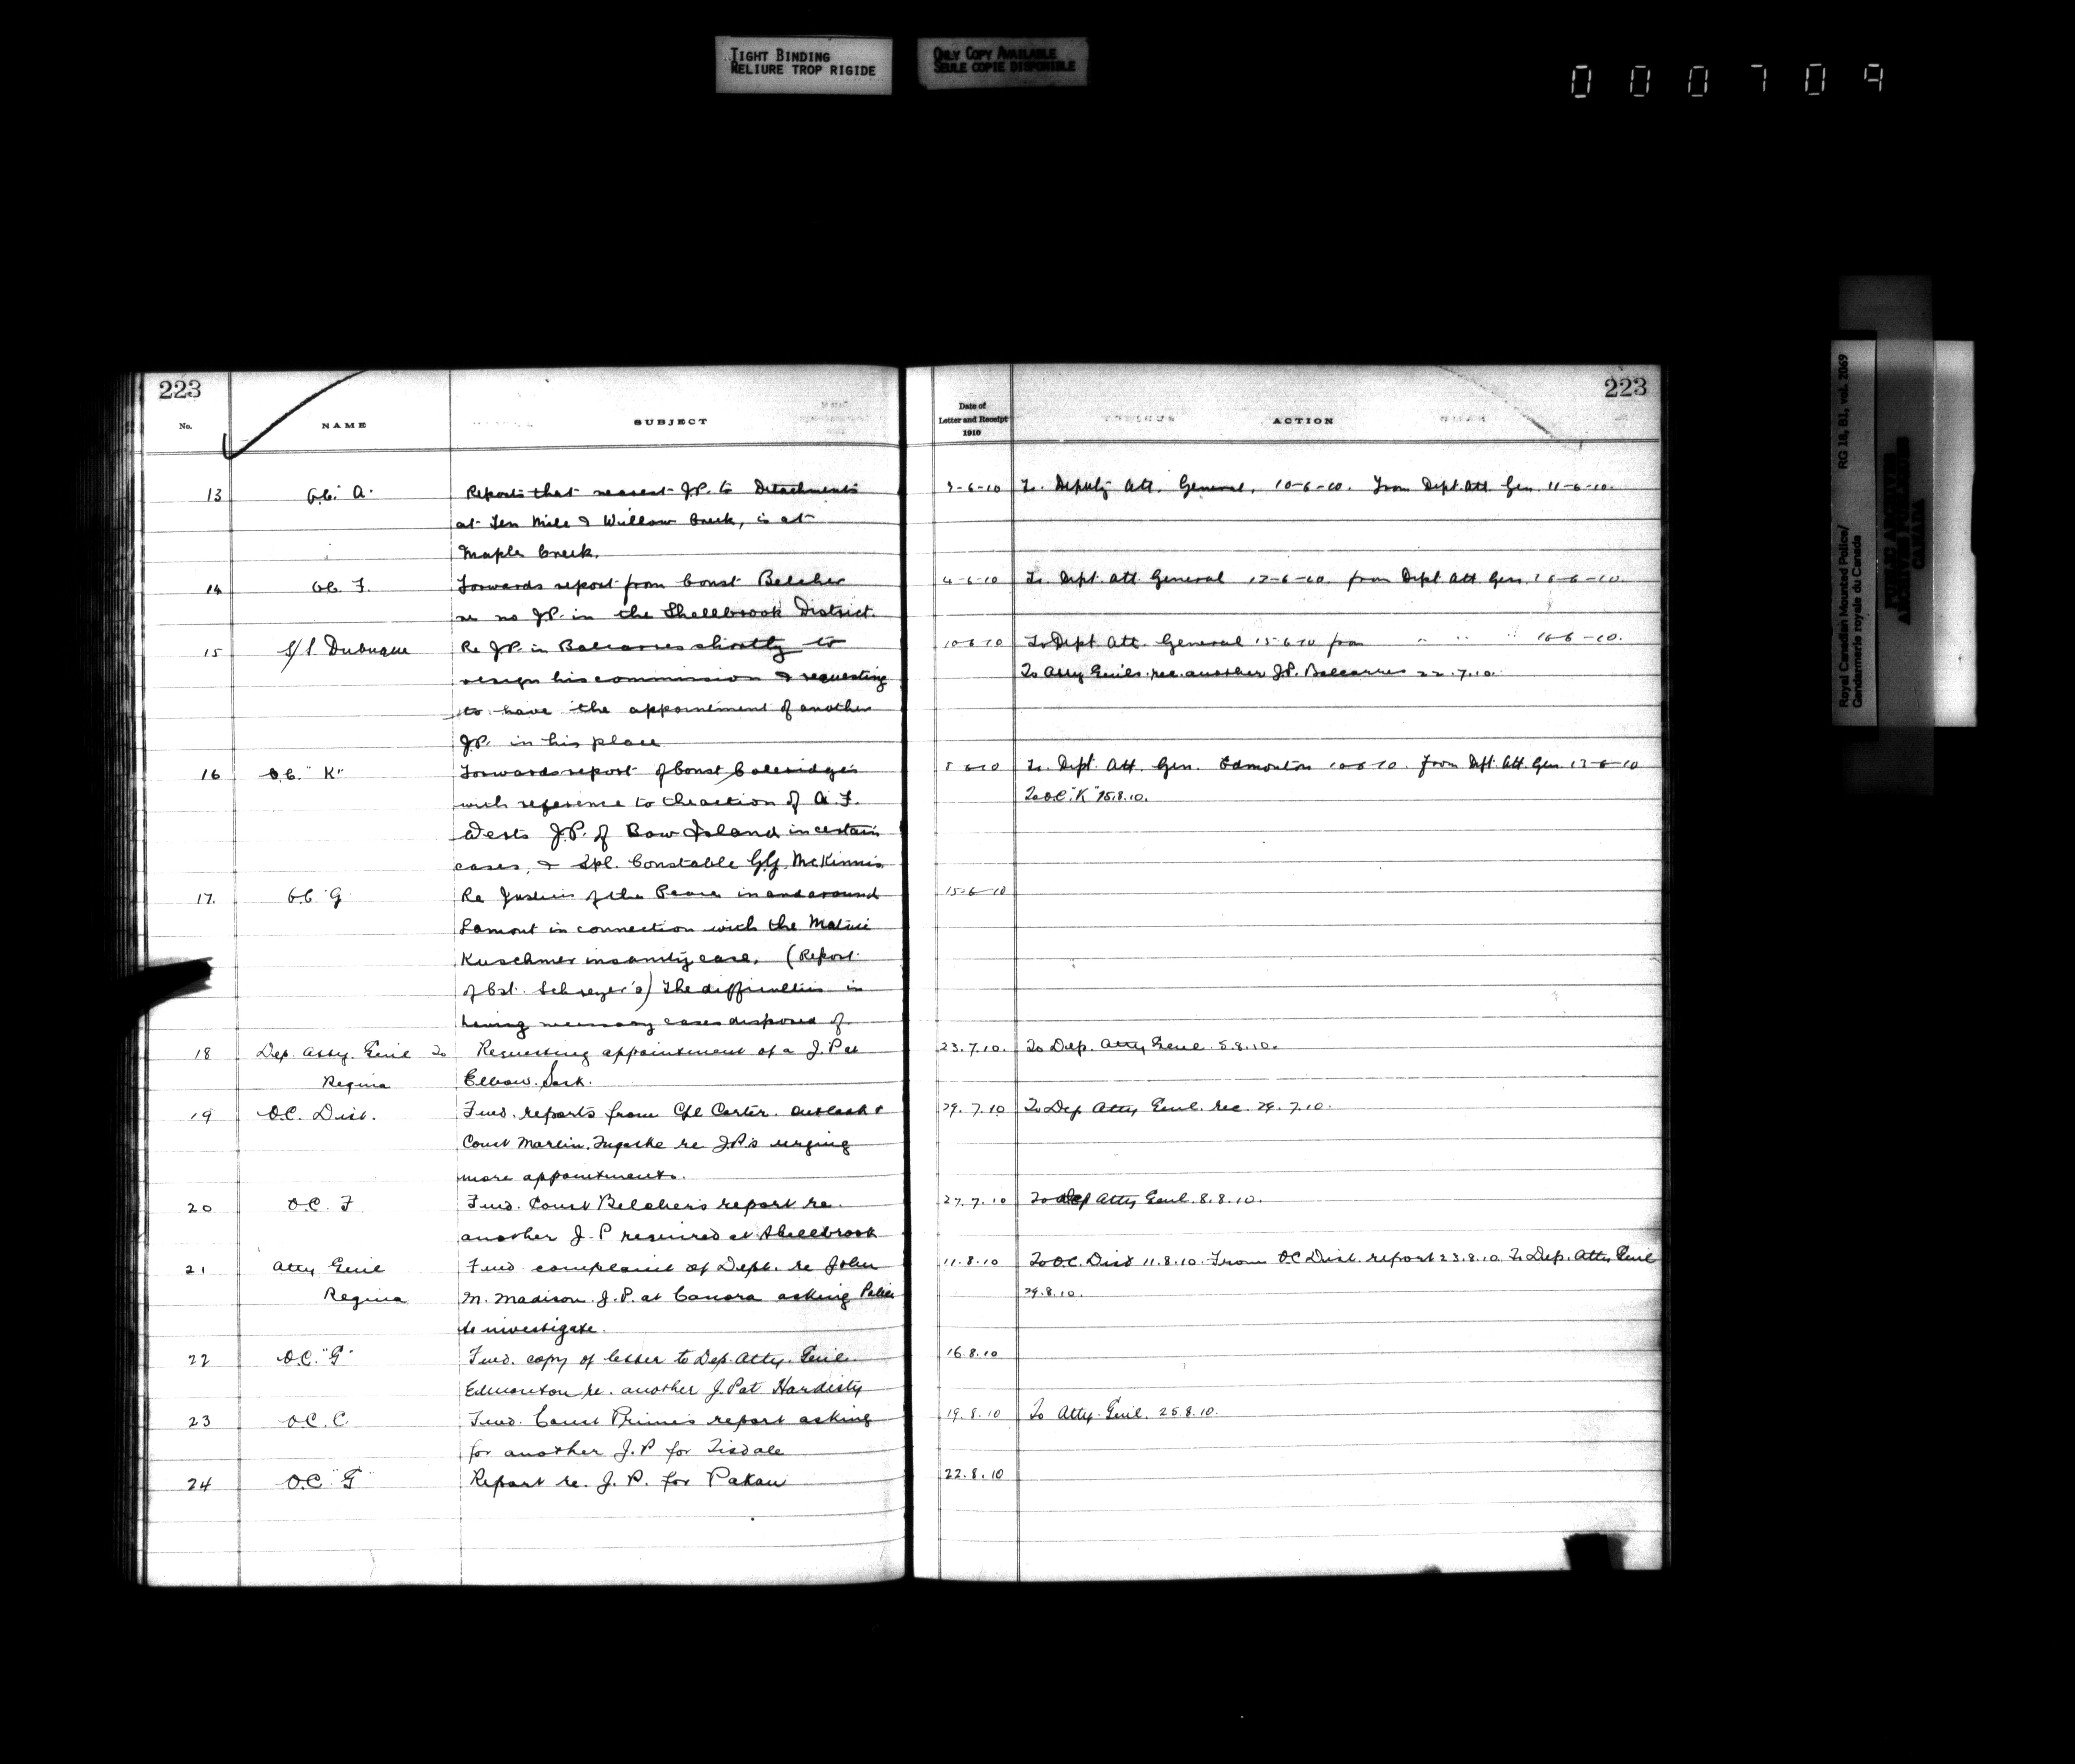 TIGHT BINDING
RELIURE TROP RIGIDE
ONLY COPY AVAILABLE
SEULE COPIE DISPONIBLE
000709
223
No.
NAME
SUBJECT
Date of
Letter and Receipt
1910
ACTION
223
13 O.C. "A" Reports that nearest J.P. to Detachments 9-6-10 To. Deputy Att. General, 10-6-10. From Dept. Att. Gen. 11-6-10.
at Ten Mile & Willow Creek, is at
Maple Creek.
14 O.C. F. Forwards report from Const Belcher 4-6-10 To. Dept. Att General 13-6-10 from Dept. Att Gen. 16-6-10.
re no J.P. in the Shellbrook District.
15 S/S. Dubuque Re J.P. in Balcarres shortly to 10-6-10 To Dept Att. General 15-6-10 from " " " 16-6-10.
resign his commission & requesting To Atty Genl's. rec. another J.P. Balcarres 22.7.10.
to have the appointment of another
J.P. in his place
16 O.C. "K" Forwards report of Const Coleridge's 8-6-10 To. Dept. Att. Gen. Edmonton 10-6-10. from Dpt. Att. Gen 13-6-10
with reference to the action of A. F. To O.C. "K" 15.8.10.
Wests J.P. of Bow Island in certain
cases, & Spl. Constable G.G. McKinnis
17. O.C "G" Re Justices of the Peace in and around 15-6-10
Lamont in connection with the
Kuschmer insanity case. (Report
of Cst. Schreyer's) The difficulties in
having necessary cases disposed of
18 Dep. Atty. Genl To Requesting appointment of a J.P at 23.7.10. To Dep. Atty Genl. 5.8.10.
Regina Elbow. Sask.
19 O.C. Dist. Fwd. reports from Cpl Carter. Outlook & 29.7.10 To Dep Atty Genl. rec. 29.7.10.
Const Marlin. Tugaske re J.P.s urging
more appointments.
20 O.C. F Fwd. Const Belcher's report re. 27.7.10 To Dep Atty Genl. 8.8.10.
another J.P required at Shellbrook
21 Atty Genl Fwd complaint of Dept. re John 11.8.10 To O.C. Dist 11.8.10. From O.C Dist. report 23.8.10. To Dep. Atty Genl
Regina M. Madison. J.P. at Canora asking Police 29.8.10.
to investigate.
22 O.C. "G" Fwd. copy of letter to Dep. Atty. Genl. 16.8.10
Edmonton re. another J.P at Hardisty
23 O.C. C. Fwd. Const Prime's report asking 19.8.10 To Atty. Genl. 25.8.10.
for another J.P for Tisdale
24 O.C "G" Report re. J.P. for Pakan 22.8.10
Royal Canadian Mounted Police/ RG 18, B1, vol. 2069
Gendarmerie royale du Canada
PUBLIC ARCHIVES
ARCHIVES PUBLIQUES
CANADA